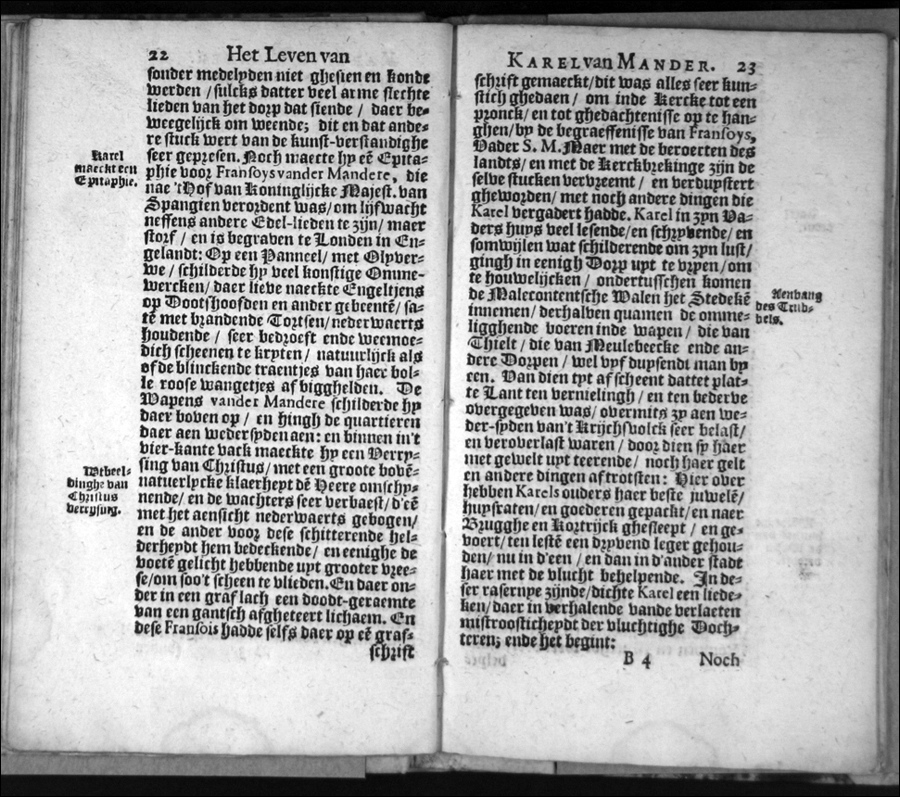 22 Het Leven van
sonder medelyden niet ghesien en konde
werden / sulcks datter veel arme slechte
lieden van het dorp dat siende / daer be-
weegelijck om weende; dit en dat ande-
re stuck wert van de kunst-verstandighe
seer gepresen. Noch maecte hy eē Epita-
phie voor Fransoys vander Mandere, die
nae 't Hof van Koninglijcke Majest. van
Spangien verordent was / om lijfwacht
neffens andere Edel-lieden te zijn / maer
storf / en is begraven te Londen in En-
gelandt: Op een Panneel / met Olyver-
we / schilderde hy veel konstige Omme-
wercken / daer lieve naeckte Engeltjens
op Dootshoofden en ander gebeentē / sa-
tē met brandende Tortsen / nederwaerts
houdende / seer bedroeft ende weemoe-
dich scheenen te kryten / natuurlijck als
of de blinckende traentjes van haer bol-
le roose wangetjes af bigghelden. De
Wapens vander Mandere schilderde hy
daer boven op / en hingh de quartieren
daer aen wedersyden aen: en binnen in't
vier-kante vack maeckte hy een Verry-
sing van Christus / met een groote bovē-
natuerlycke klaerheyt dē Heere omschy-
nende / en de wachters seer verbaest / d'eē
met het aensicht nederwaerts gebogen /
en de ander voor dese schitterende hel-
derheydt hem bedeckende / en eenighe de
voetē gelicht hebbende uyt grooter vree-
se / om soo't scheen te vlieden. En daer on-
der in een graf lach een doodt-geraemte
van een gantsch afgheteert lichaem. En
dese Fransois hadde selfs daer op eē graf-
schrift
Karel
maeckt een
Epitaphie.
Wtbeel-
dinghe van
Christus
verrysing.
KAREL van MANDER. 23
schrift gemaeckt / dit was alles seer kun-
stich ghedaen / om inde Kercke tot een
pronck / en tot ghedachtenisse op te han-
ghen / by de begraeffenisse van Fransoys,
Vader S. M. Maer met de beroerten des
landts / en met de Kerckbrekinge zijn de
selve stucken vervreemt / en verduystert
gheworden / met noch andere dingen die
Karel vergadert hadde. Karel in zyn Va-
ders huys veel lesende / en schryvende / en
somwijlen wat schilderende om zyn lust /
gingh in eenigh Dorp uyt te vryen / om
te houwelijcken / ondertusschen komen
de Malecontentsche Walen het Stedekē
innemen / derhalven quamen de omme-
ligghende boeren inde wapen / die van
Thielt / die van Meulebeecke ende an-
dere Dorpen / wel vyf duysendt man by
een. Van dien tyt af scheent dattet plat-
te Lant ten vernielingh / en ten bederve
overgegeven was / overmits zy aen we-
der-syden van't Krijchsvolck seer belast /
en veroverlast waren / door dien sy haer
met gewelt uyt teerende / noch haer gelt
en andere dingen af trotsten: Hier over
hebben Karels ouders haer beste juwelē /
huysraten / en goederen gepackt / en naer
Brugghe en Kortrijck ghesleept / en ge-
voert / ten lestē een dryvend leger gehou-
den / nu in d'een / en dan in d'ander stadt
haer met de vlucht behelpende. In de-
ser rasernye zijnde / dichte Karel een liede-
ken / daer in verhalende vande verlaeten
mistroosticheydt der vluchtighe Doch-
teren; ende het begint:
B 4 Noch
Aenvang
des Trub-
bels.